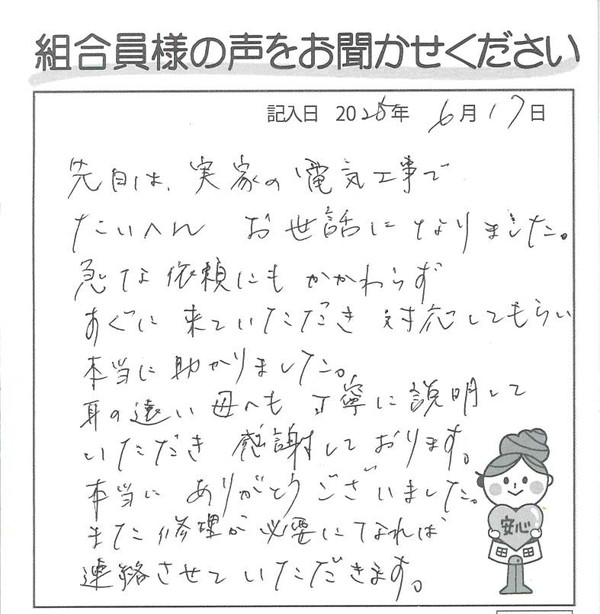 組合員様の声をお聞かせください
記入日 2025年 6月17日
先日は、実家の電気工事で
たいへん お世話になりました。
急な依頼にもかかわらず
すぐに来ていただき対応してもらい
本当に助かりました。
耳の遠い母へも丁寧に説明して
いただき 感謝しております。
本当に ありがとうございました。
また修理が必要になれば
連絡させていただきます。
安心